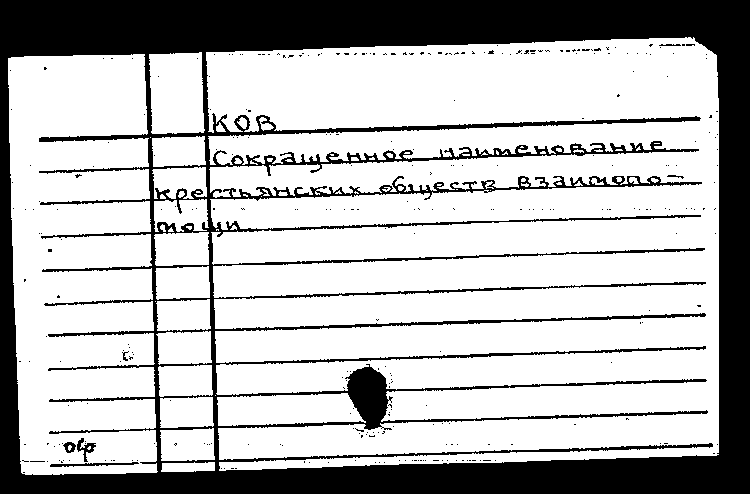 КОВ
Сокращенное наименование
крестьянских обществ взаимопо-
мощи.